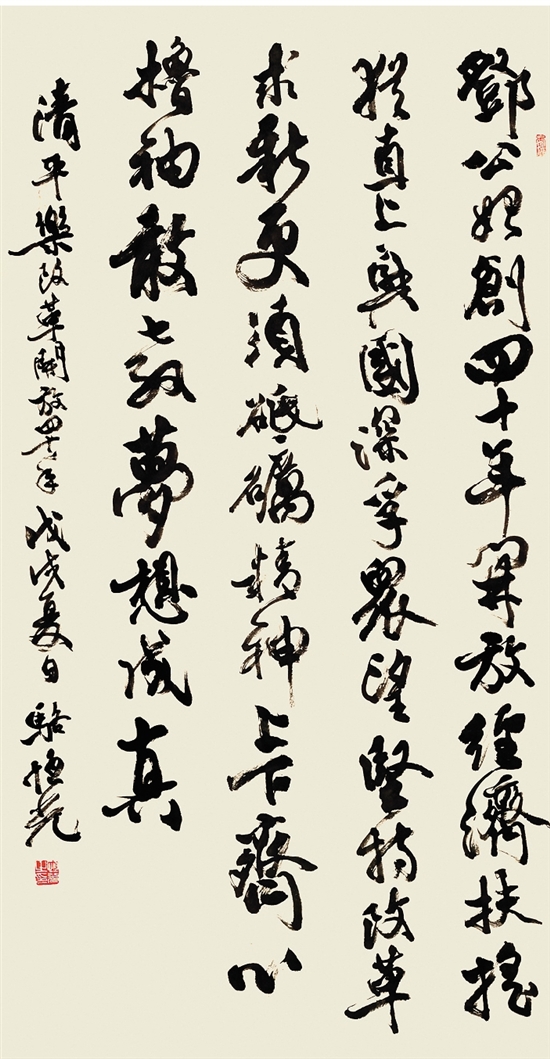 鄧公始創四十年開放經濟扶搖
猶直上興國深孚眾望堅持改革
求新更須砥礪精神上下齊心
擼袖敢教夢想成真
清平樂改革開放四十年戊戌夏日駱恒光